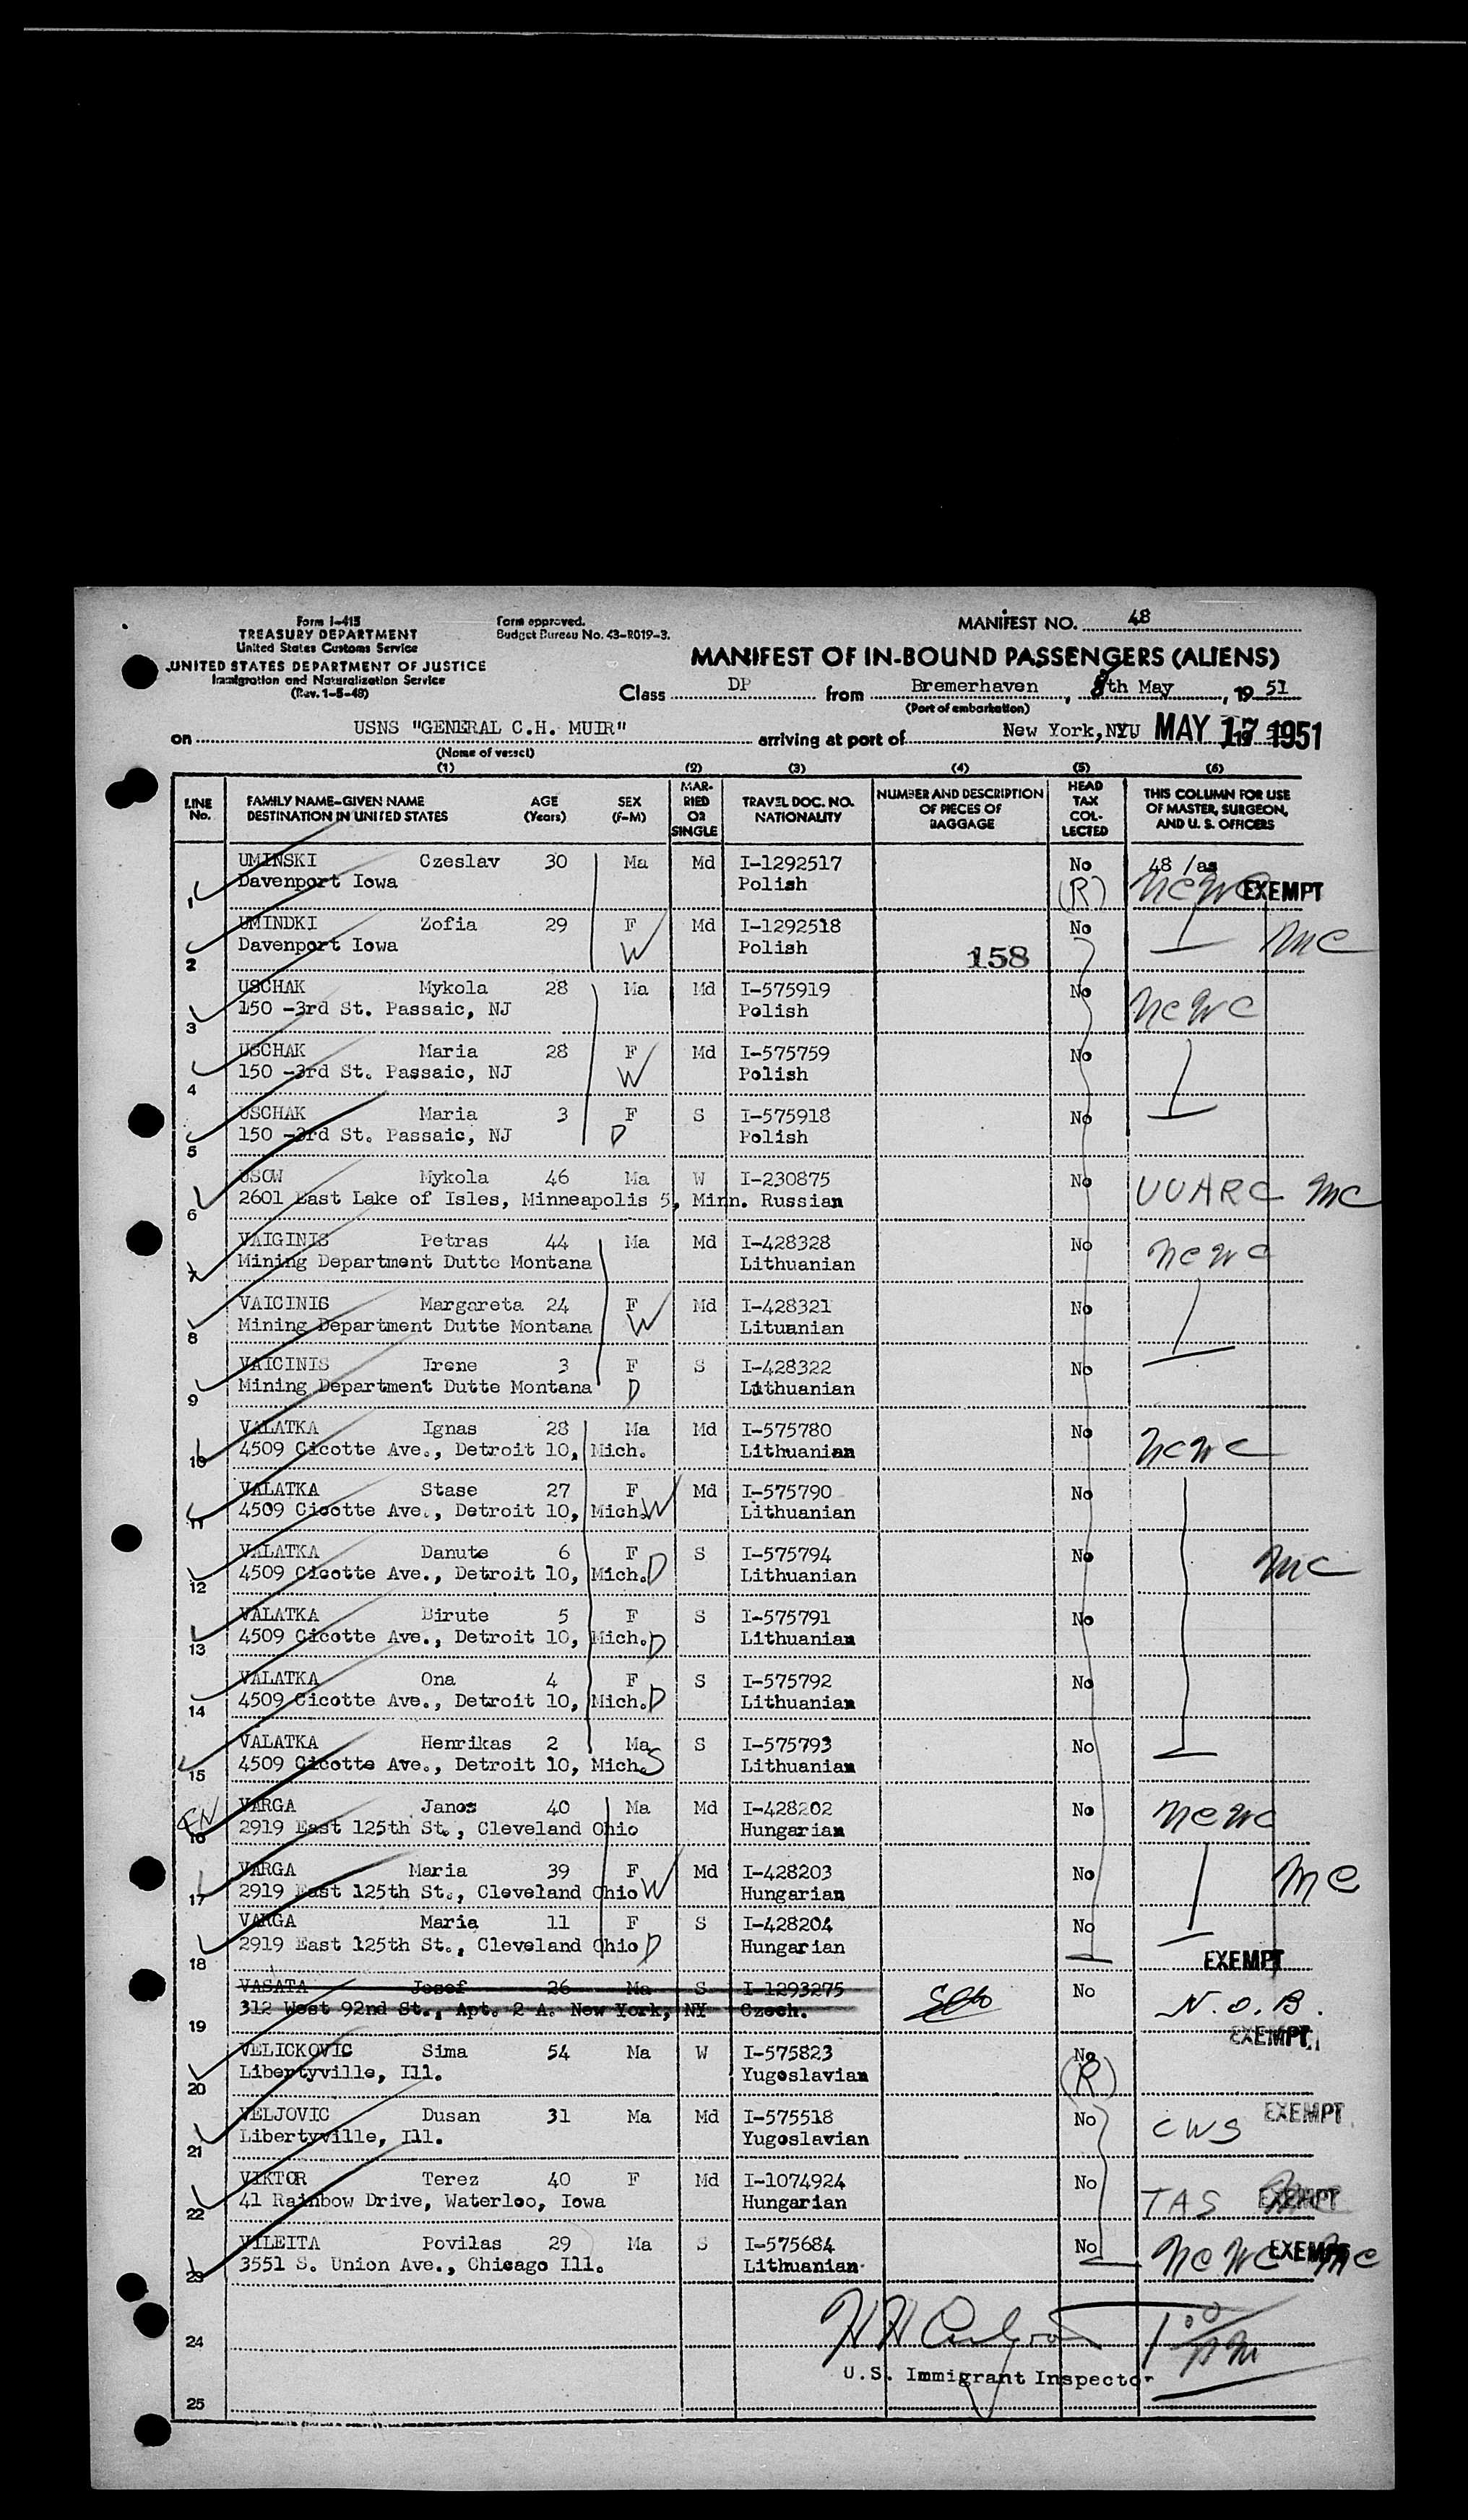 Form I-415
TREASURY DEPARTMENT
United States Customs Service
UNITED STATES DEPARTMENT OF JUSTICE
Immigration and Naturalization Service
(Rev. 1-5-48)
Form approved.
Budget Bureau No. 43-R019-3.
MANIFEST NO. 48
MANIFEST OF IN-BOUND PASSENGERS (ALIENS)
Class DP from Bremerhaven, 8th May, 19 51
(Port of embarkation)
on USNS "GENERAL C.H. MUIR" arriving at port of New York, NYU MAY 17 1951
(Name of vessel)
(1) (2) (3) (4) (5) (6)
LINE No. FAMILY NAME-GIVEN NAME DESTINATION IN UNITED STATES AGE (Years) SEX (F-M) MARRIED OR SINGLE TRAVEL DOC. NO. NATIONALITY NUMBER AND DESCRIPTION OF PIECES OF BAGGAGE HEAD TAX COLLECTED THIS COLUMN FOR USE OF MASTER, SURGEON, AND U. S. OFFICERS
UMINSKI Czeslav 30 Ma Md I-1292517 No 48 /as
1 Davenport Iowa Polish (R) NCWC EXEMPT
UMINDKI Zofia 29 F Md I-1292518 No
2 Davenport Iowa W Polish 158 MC
USCHAK Mykola 28 Ma Md I-575919 No NCWC
3 150 -3rd St. Passaic, NJ Polish
USCHAK Maria 28 F Md I-575759 No
4 150 -3rd St. Passaic, NJ W Polish
USCHAK Maria 3 F S I-575918 No
5 150 -3rd St. Passaic, NJ D Polish
USOW Mykola 46 Ma W I-230875 No UUARC MC
6 2601 East Lake of Isles, Minneapolis 5, Minn. Russian
VAIGINIS Petras 44 Ma Md I-428328 No NCWC
7 Mining Department Dutte Montana Lithuanian
VAICINIS Margareta 24 F Md I-428321 No
8 Mining Department Dutte Montana W Lituanian
VAICINIS Irene 3 F S I-428322 No
9 Mining Department Dutte Montana D Lithuanian
VALATKA Ignas 28 Ma Md I-575780 No NCWC
10 4509 Cicotte Ave., Detroit 10, Mich. Lithuanian
VALATKA Stase 27 F Md I-575790 No
11 4509 Cicotte Ave., Detroit 10, Mich. W Lithuanian
VALATKA Danute 6 F S I-575794 No MC
12 4509 Cicotte Ave., Detroit 10, Mich. D Lithuanian
VALATKA Birute 5 F S I-575791 No
13 4509 Cicotte Ave., Detroit 10, Mich. D Lithuanian
VALATKA Ona 4 F S I-575792 No
14 4509 Cicotte Ave., Detroit 10, Mich. D Lithuanian
VALATKA Henrikas 2 Ma S I-575793 No
15 4509 Cicotte Ave., Detroit 10, Mich. S Lithuanian
VARGA Janos 40 Ma Md I-428202 No NCWC
16 2919 East 125th St., Cleveland Ohio Hungarian
VARGA Maria 39 F Md I-428203 No MC
17 2919 East 125th St., Cleveland Ohio W Hungarian
VARGA Maria 11 F S I-428204 No
18 2919 East 125th St., Cleveland Ohio D Hungarian EXEMPT
VASATA Josef 26 Ma S I-1293275 No N.O.B.
19 312 West 92nd St., Apt. 2 A. New York, NY Czech. EXEMPT
VELICKOVIC Sima 54 Ma W I-575823 No
20 Libertyville, Ill. Yugoslavian (R)
VELJOVIC Dusan 31 Ma Md I-575518 No CWS EXEMPT
21 Libertyville, Ill. Yugoslavian
VIKTOR Terez 40 F Md I-1074924 No
22 41 Rainbow Drive, Waterloo, Iowa Hungarian TAS EXEMPT
VILEITA Povilas 29 Ma S I-575684 No NCWC EXEMPT MC
23 3551 S. Union Ave., Chicago Ill. Lithuanian
24
U.S. Immigrant Inspector
25